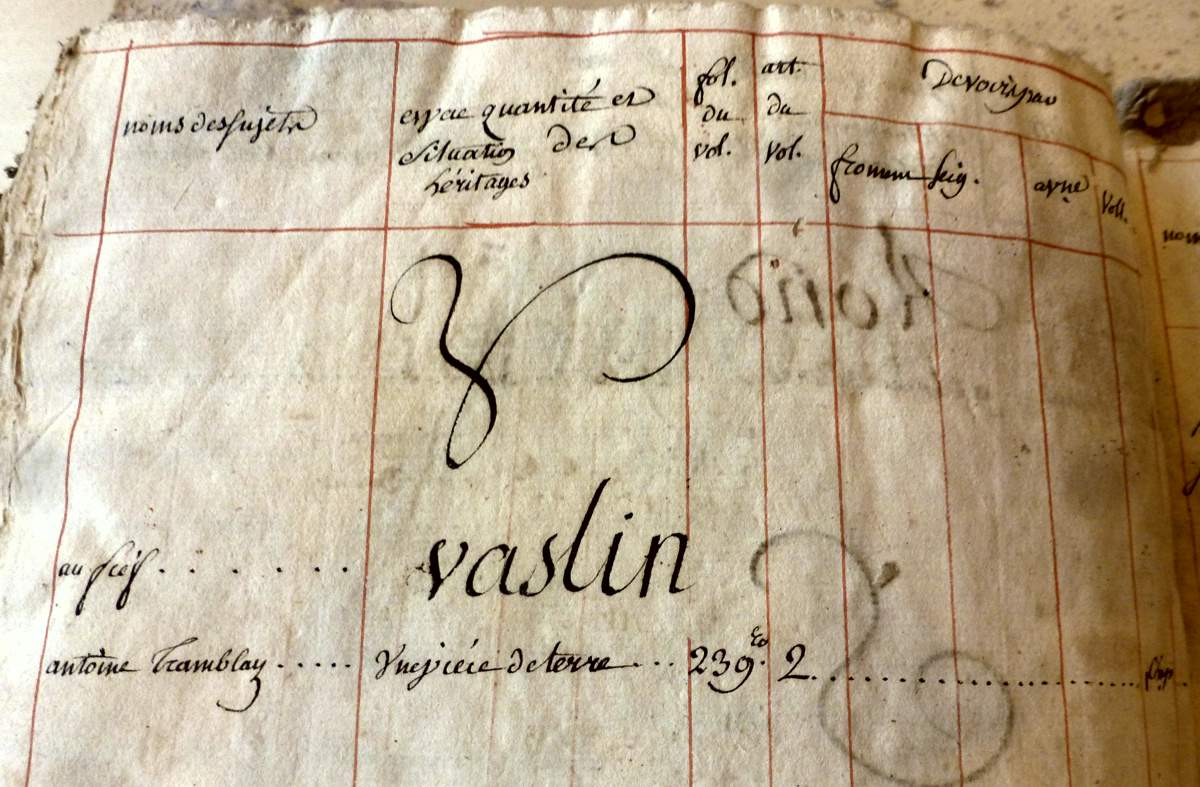 noms des sujets
espece quantité et
situation des
héritages
fol.
du
vol.
art.
du
vol.
Devoirs
froment
seig.
avne
Voll.
V
vaslin
au fief . . . . . .
antoine Tramblay . . . . . Une piéce de terre . . . 239 Ro. 2 . . . . . . . . . . . . . . . . . . . .
nom